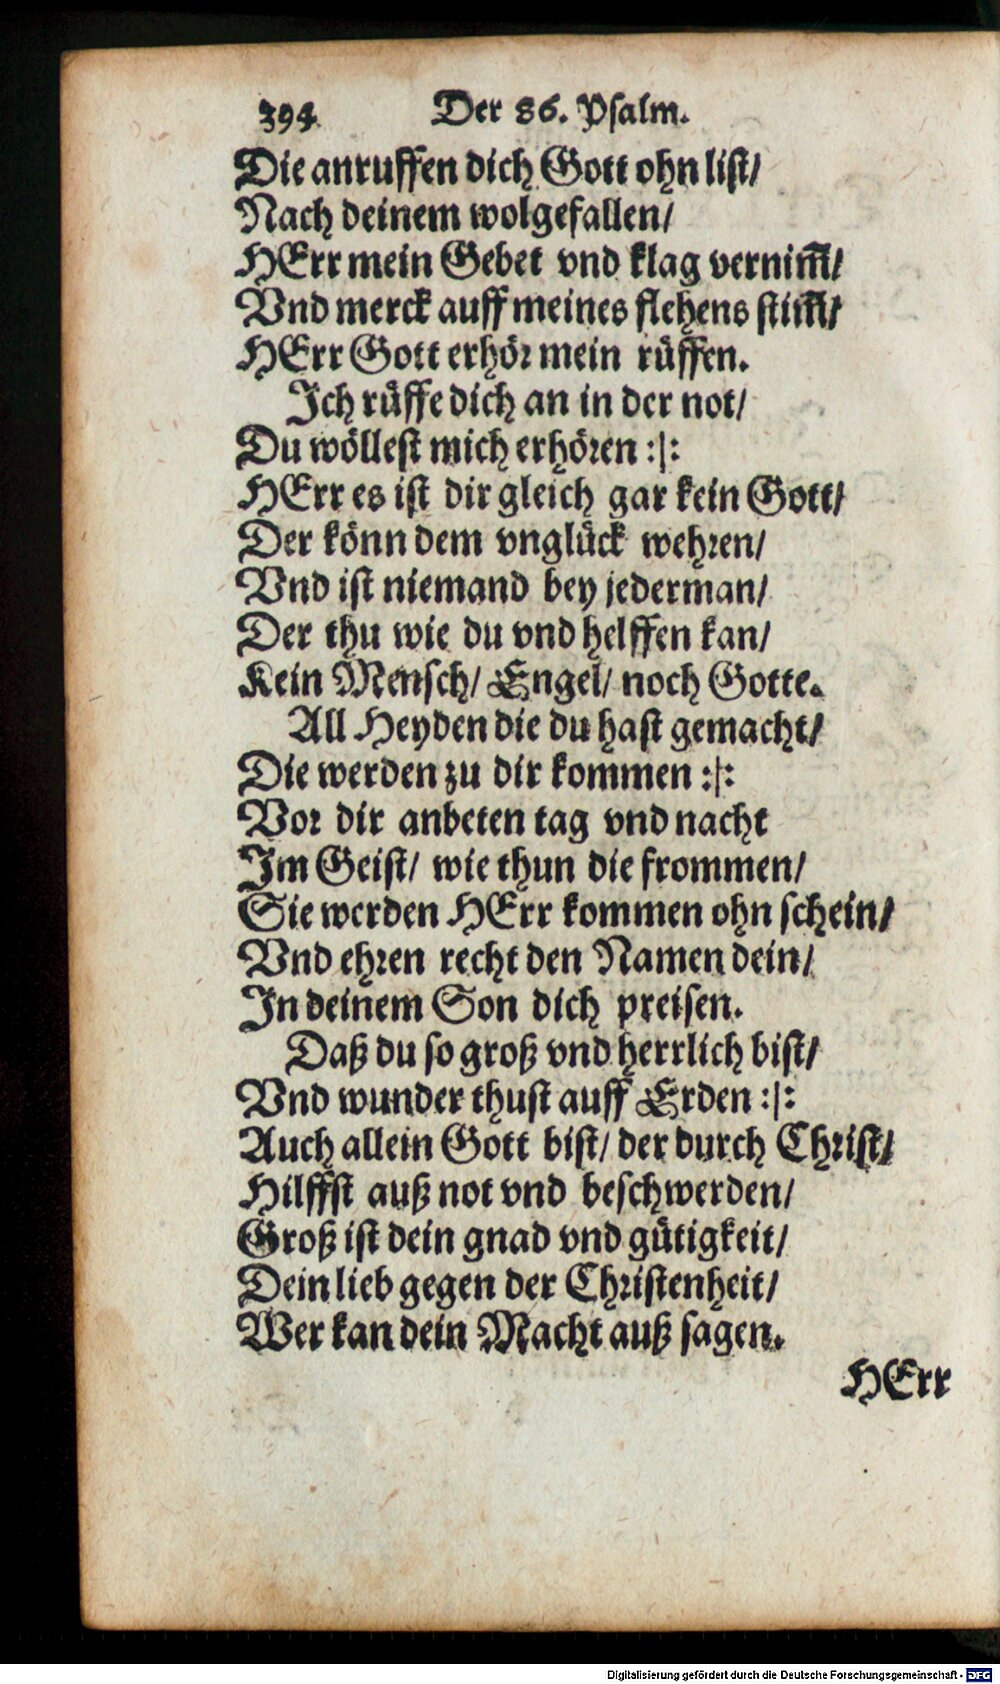 394 Der 86. Psalm.
Die anruffen dich Gott ohn list/
Nach deinem wolgefallen/
HErr mein Gebet vnd klag vernim̃/
Vnd merck auff meines flehens stim̃/
HErr Gott erhör mein rüffen.
Ich rüffe dich an in der not/
Du wöllest mich erhören :|:
HErr es ist dir gleich gar kein Gott/
Der könn dem vnglück wehren/
Vnd ist niemand bey jederman/
Der thu wie du vnd helffen kan/
Kein Mensch/ Engel/ noch Gotte.
All Heyden die du hast gemacht/
Die werden zu dir kommen :|:
Vor dir anbeten tag vnd nacht
Im Geist/ wie thun die frommen/
Sie werden HErr kommen ohn schein/
Vnd ehren recht den Namen dein/
In deinem Son dich preisen.
Daß du so groß vnd herrlich bist/
Vnd wunder thust auff Erden :|:
Auch allein Gott bist/ der durch Christ/
Hilffst auß not vnd beschwerden/
Groß ist dein gnad vnd gütigkeit/
Dein lieb gegen der Christenheit/
Wer kan dein Macht auß sagen.
HErr
Digitalisierung gefördert durch die Deutsche Forschungsgemeinschaft - DFG